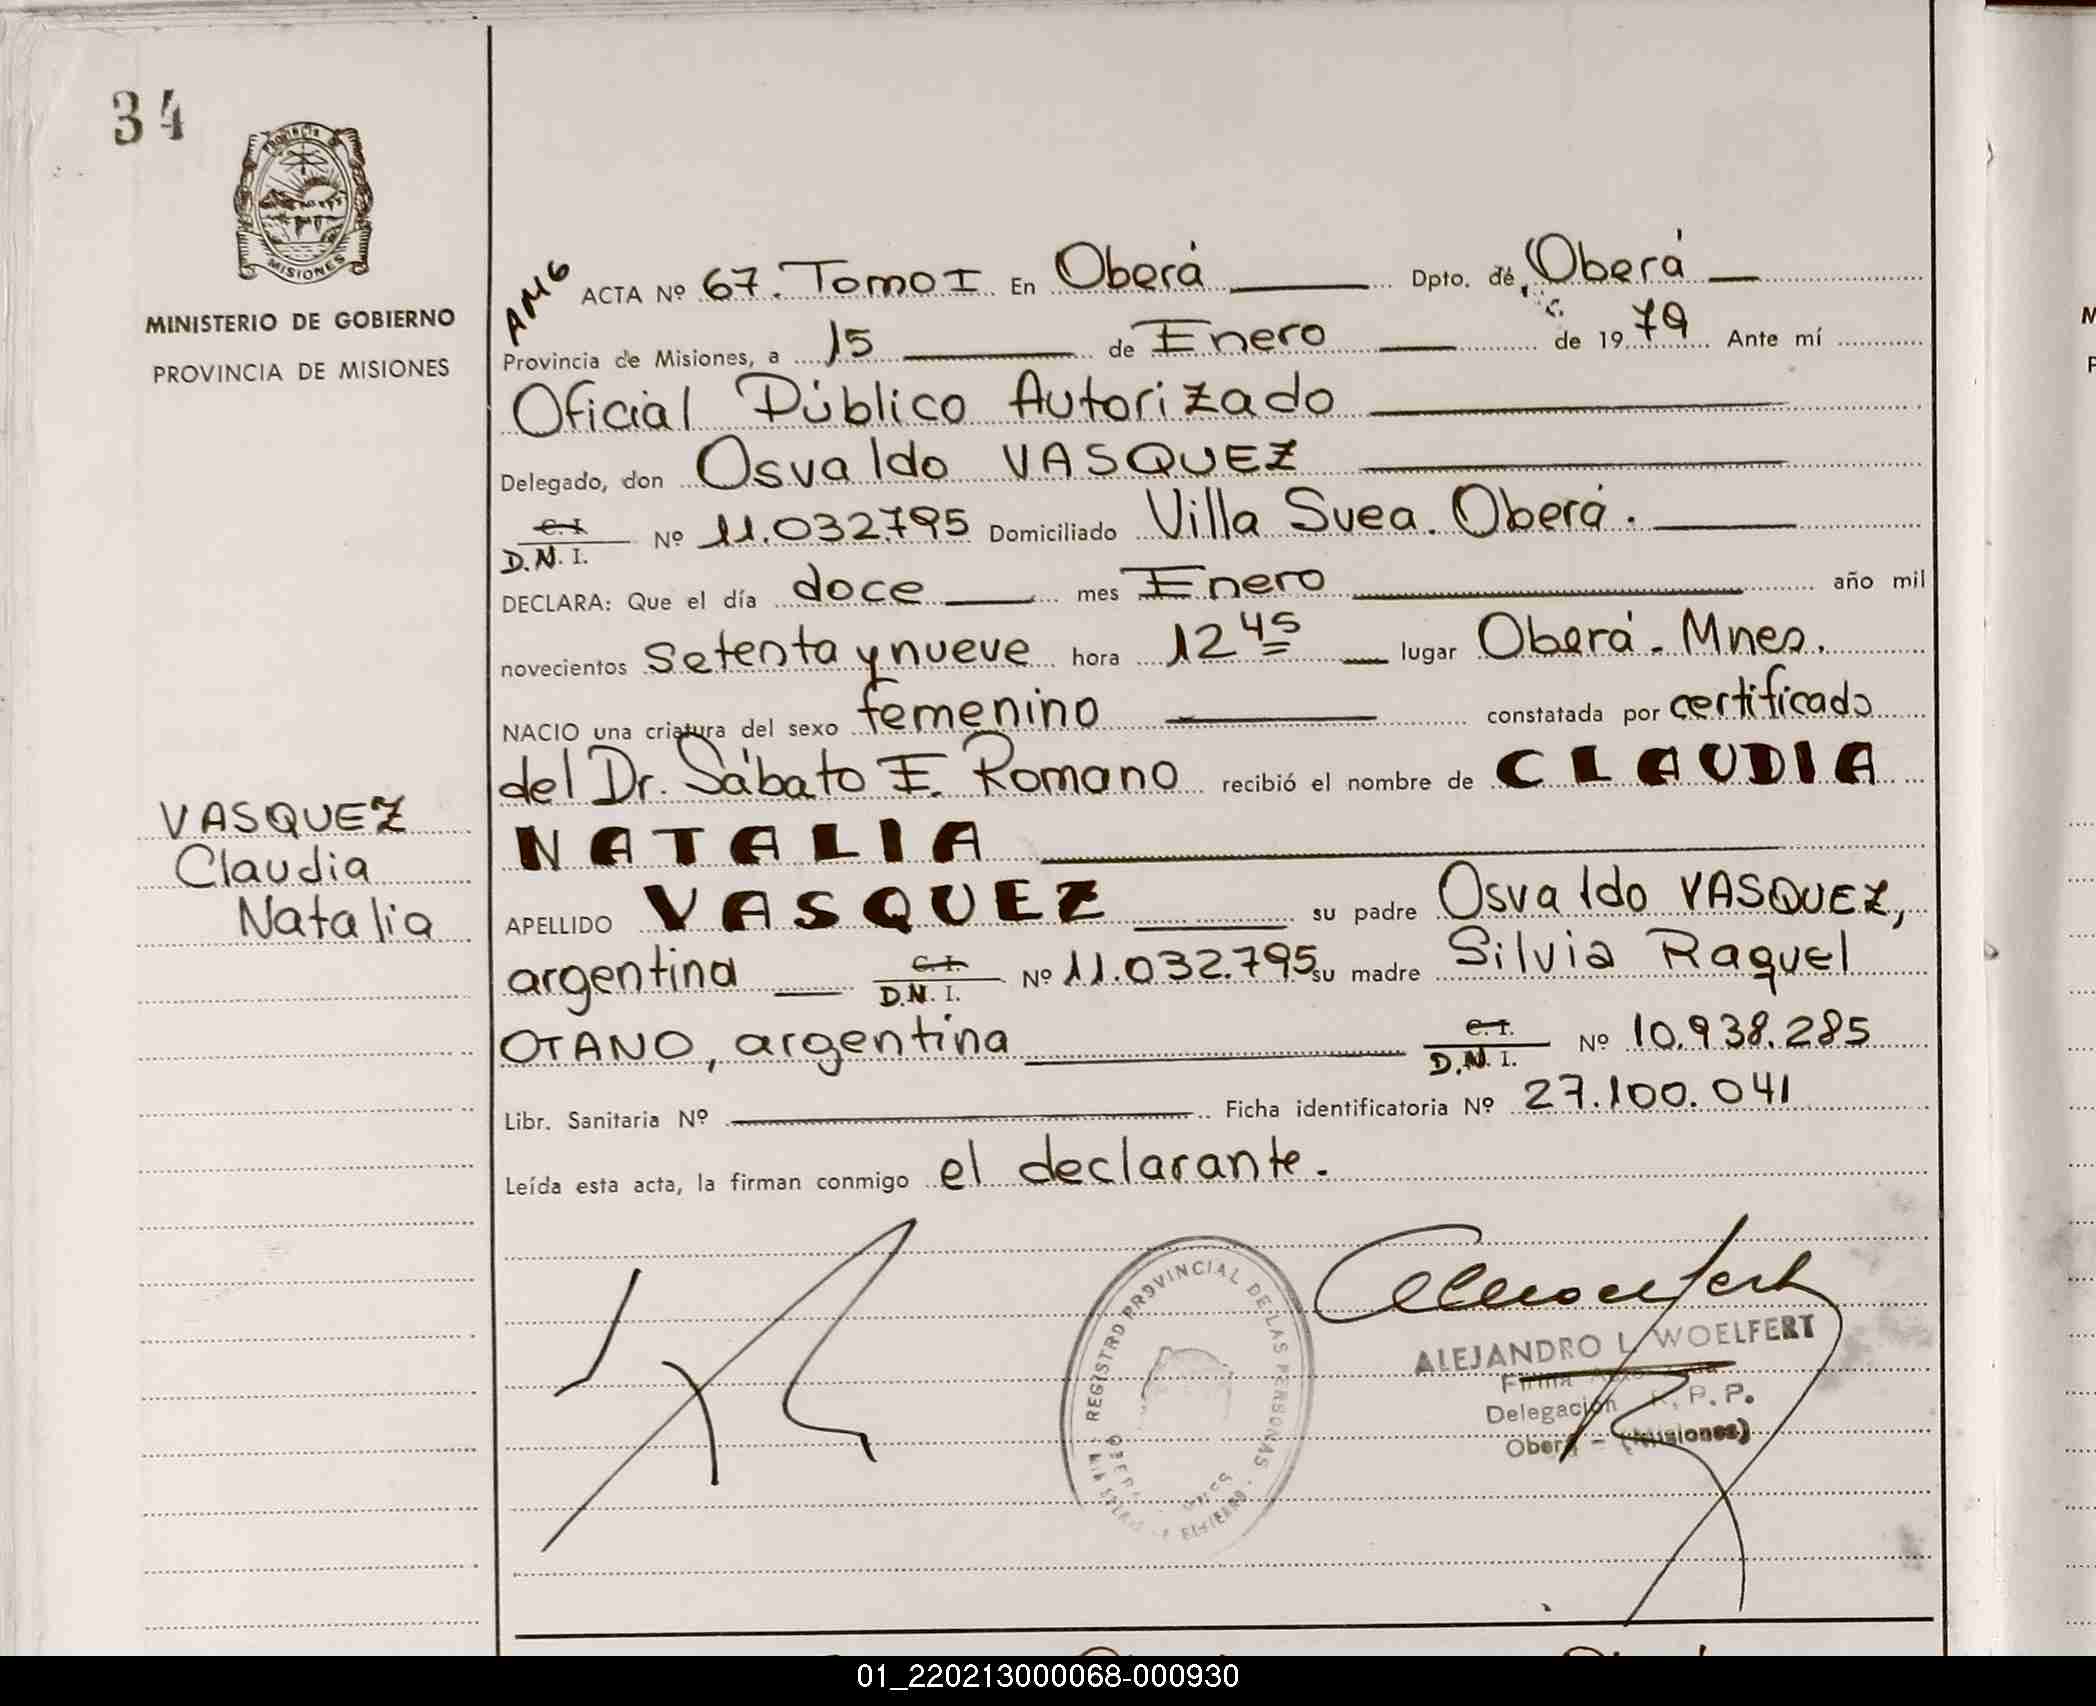 34
Provincia
MISIONES
MINISTERIO DE GOBIERNO
PROVINCIA DE MISIONES
VASQUEZ
Claudia
Natalia
ACTA Nº 67. Tomo I En Oberá Dpto. de Oberá
Provincia de Misiones, a 15 de Enero de 1979 Ante mí
Oficial Público Autorizado
Delegado, don Osvaldo VASQUEZ
C.I.
D.N.I. Nº 11.032.795 Domiciliado Villa Svea. Oberá.
DECLARA: Que el día doce mes Enero año mil
novecientos setenta y nueve hora 12 45 lugar Oberá. Mnes.
NACIO una criatura del sexo femenino constatada por certificado
del Dr. Sábato E. Romano recibió el nombre de CLAUDIA
NATALIA
APELLIDO VASQUEZ su padre Osvaldo VASQUEZ,
argentina C.I. D.N.I. Nº 11.032.795 su madre Silvia Raquel
OTANO, argentina C.I. D.N.I. Nº 10.938.285
Libr. Sanitaria Nº Ficha identificatoria Nº 27.100.041
Leída esta acta, la firman conmigo el declarante.
REGISTRO PROVINCIAL DE LAS PERSONAS
ALEJANDRO L. WOELFERT
Delegación R.P.P.
Oberá - (Misiones)
01_220213000068-000930